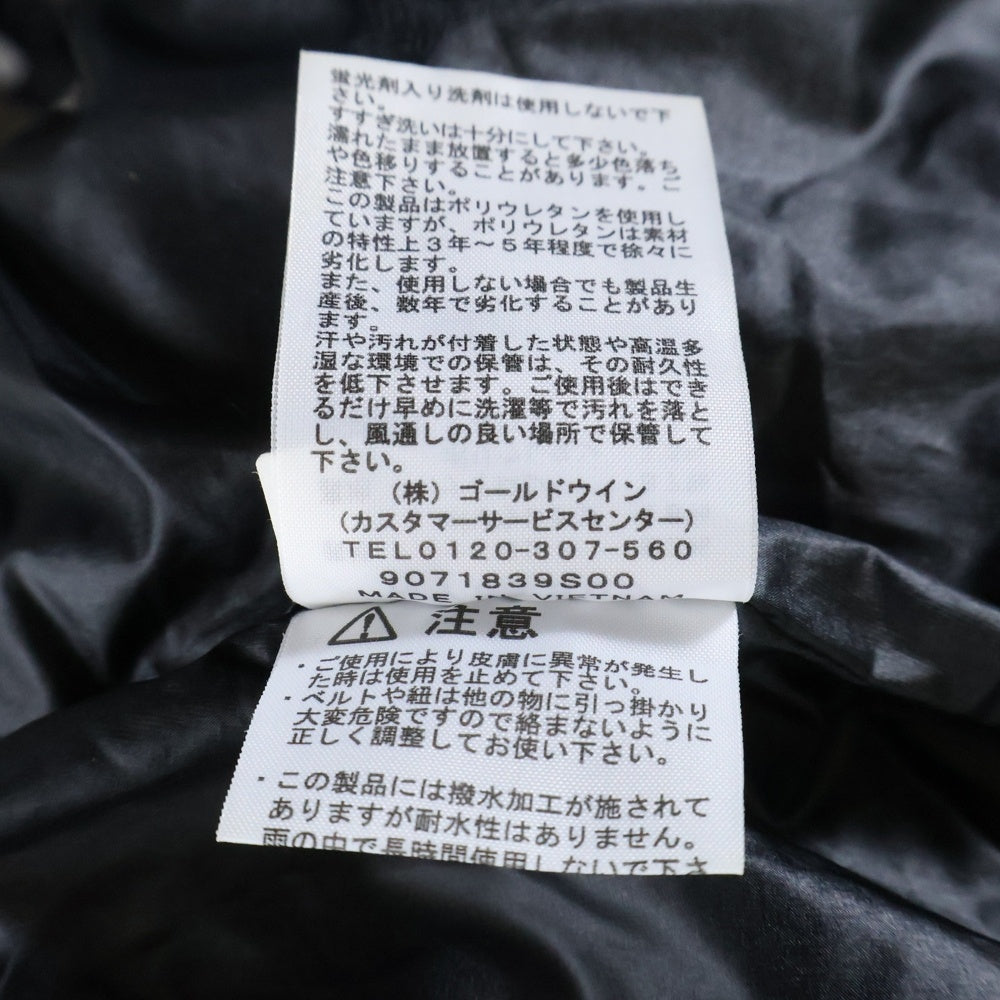 蛍光剤入り洗剤は使用しないで下
さい。
すすぎ洗いは十分にして下さい。
濡れたまま放置すると多少色落ち
や色移りすることがあります。ご
注意下さい。
この製品はポリウレタンを使用し
ていますが、ポリウレタンは素材
の特性上3年～5年程度で徐々に
劣化します。
また、使用しない場合でも製品生
産後、数年で劣化することがあり
ます。
汗や汚れが付着した状態や高温多
湿な環境での保管は、その耐久性
を低下させます。ご使用後はでき
るだけ早めに洗濯等で汚れを落と
し、風通しの良い場所で保管して
下さい。
(株)ゴールドウイン
(カスタマーサービスセンター)
TEL0120-307-560
9071839S00
MADE IN VIETNAM
⚠ 注意
・ご使用により皮膚に異常が発生し
た時は使用を止めて下さい。
・ベルトや紐は他の物に引っ掛かり
大変危険ですので絡まないように
正しく調整してお使い下さい。
・この製品には撥水加工が施されて
ありますが耐水性はありません。
雨の中で長時間使用しないで下さ